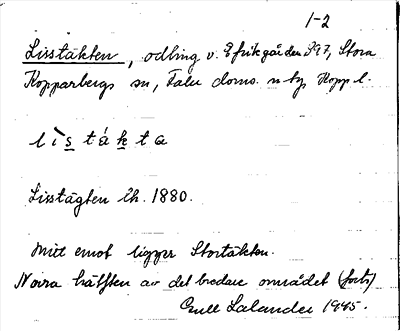 1-2
Lisstäkten, odling v. Efrikgården S97, Stora
Kopparbergs sn, Falu doms. n by, Kopp l.
lìstákta
Lisstägten Eh. 1880.
Mitt emot ligger Stortäkten.
Norra hälften av det bredare området (forts)
Gull Lalander 1945.